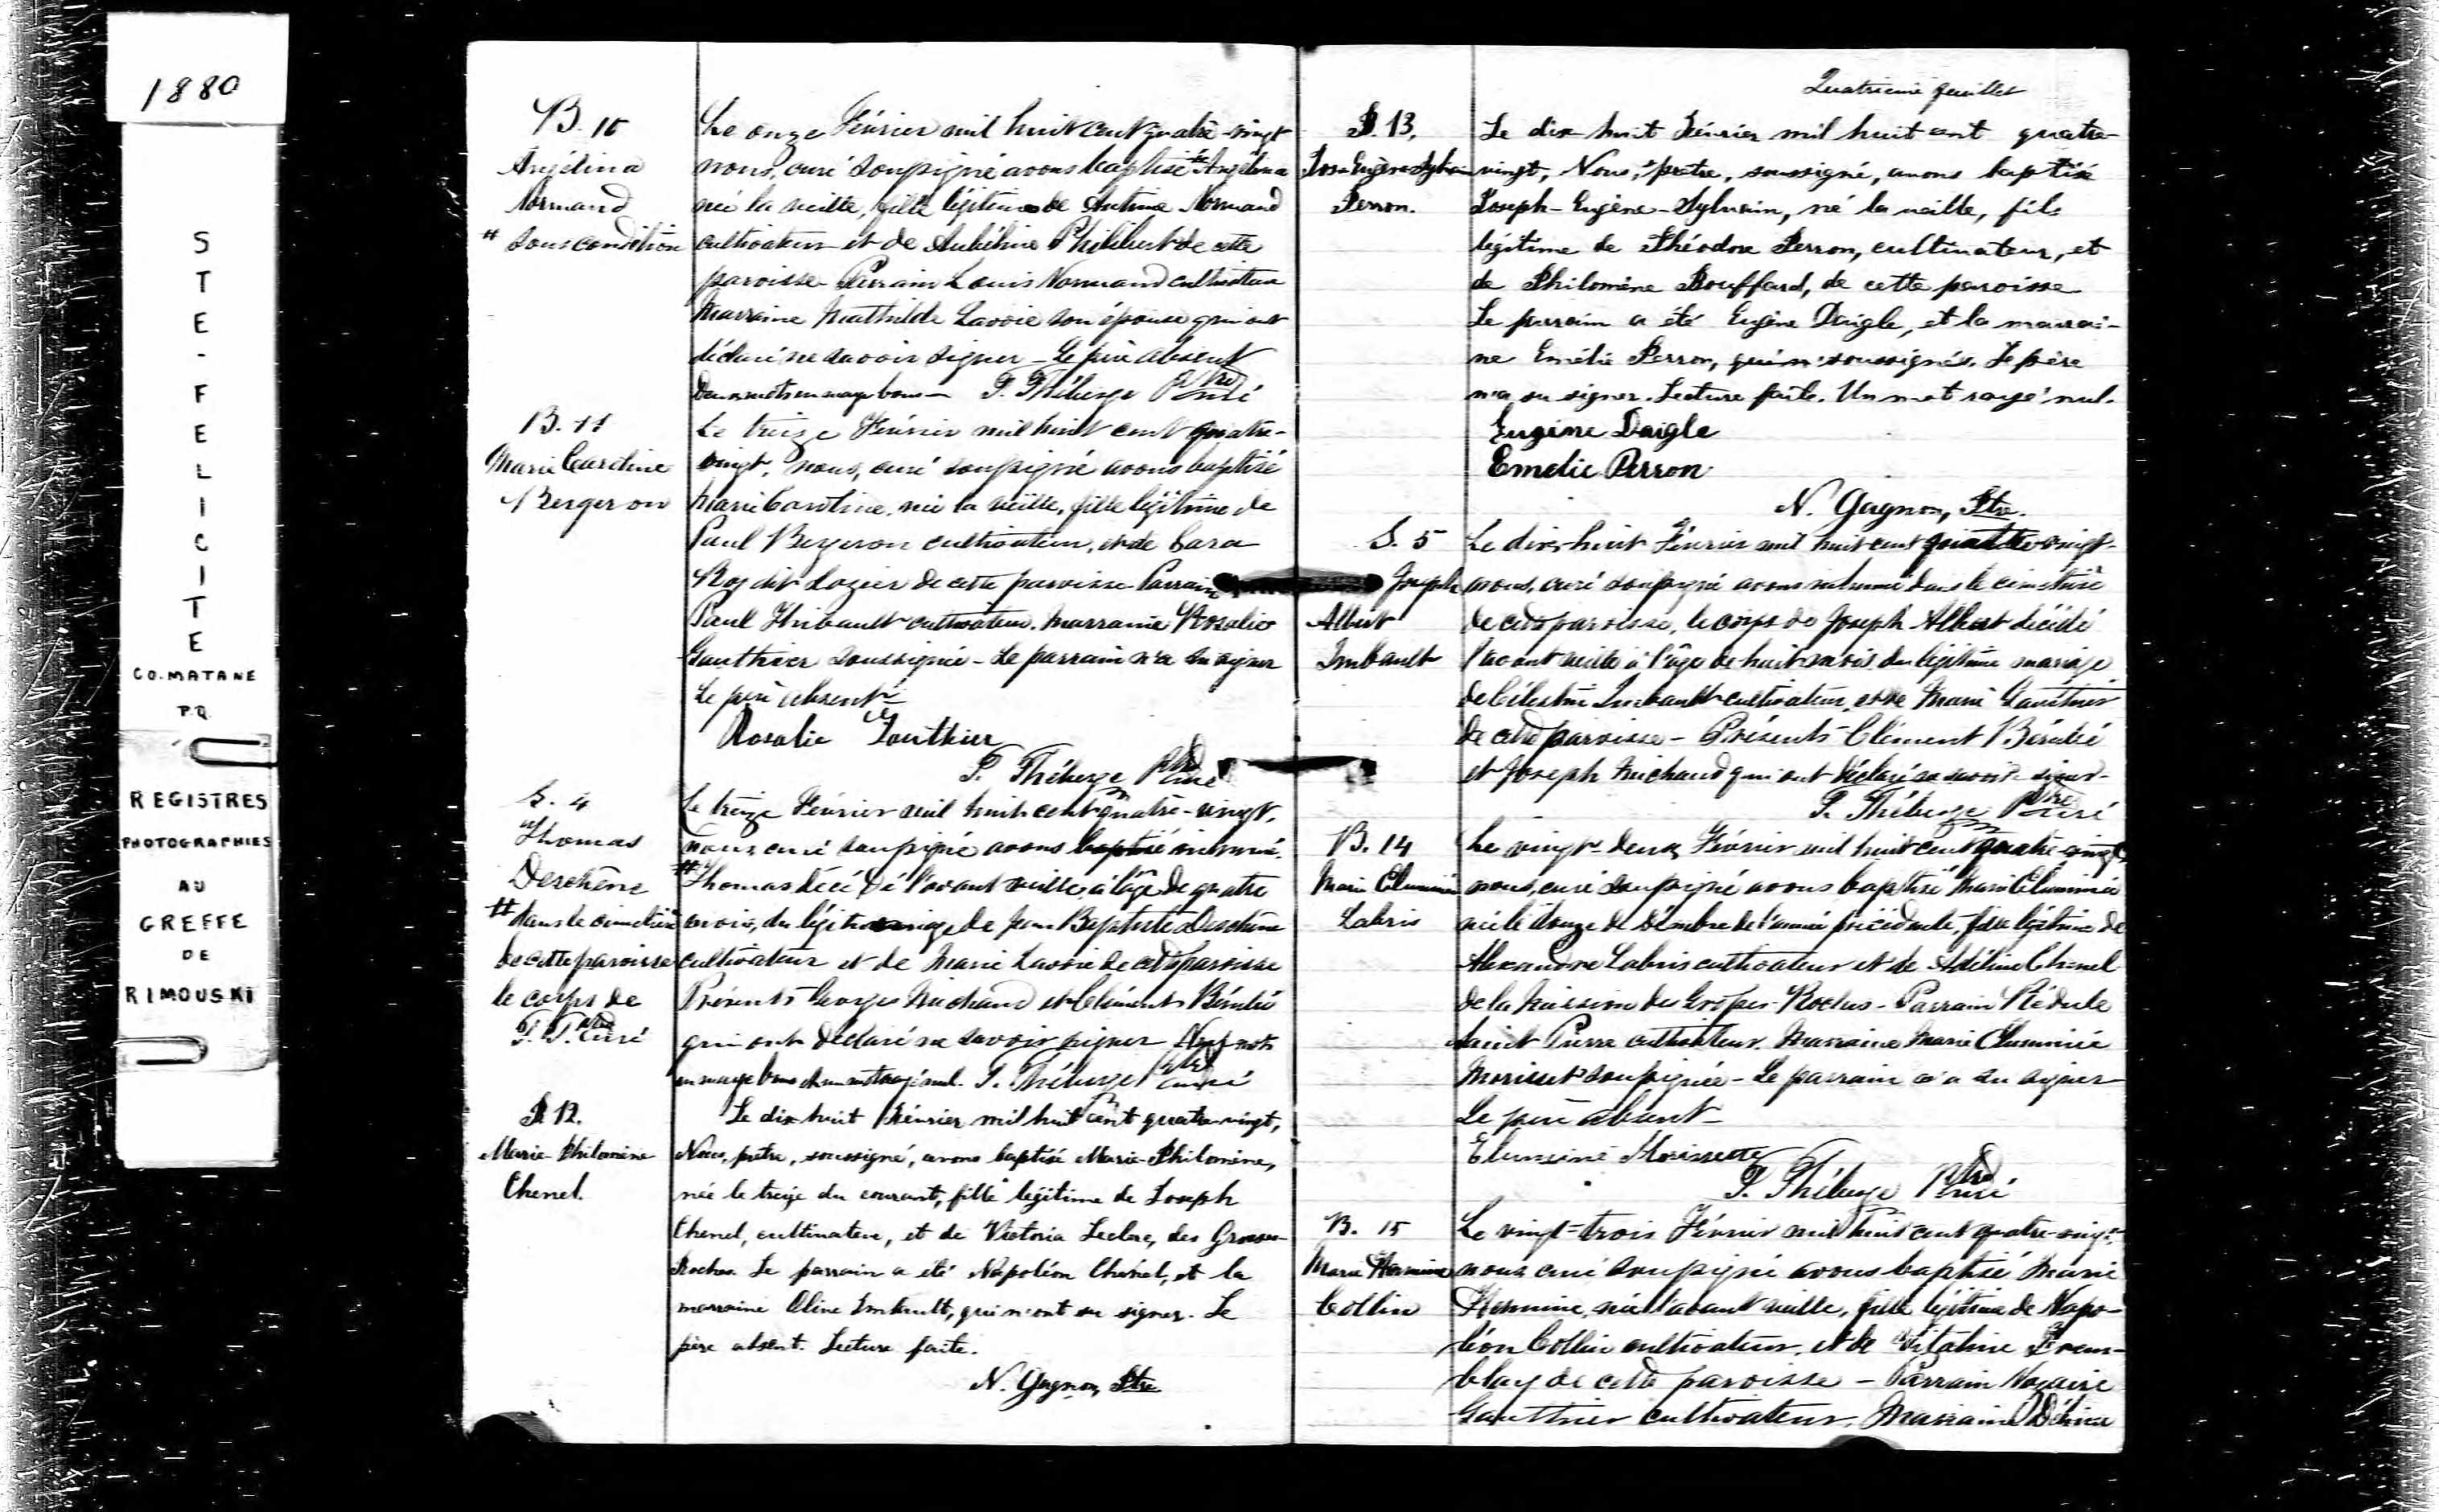 1880
STE-FELICITE
CO. MATANE
P.Q.
REGISTRES
PHOTOGRAPHIES
AU
GREFFE
DE
RIMOUSKI
B. 10
Angélina
Normand
# sous condition
Le onze Février mil huit cent quatre-vingt
nous, curé soussigné avons baptisé # Angélina
née la veille, fille légitime de Antime Normand
cultivateur et de Philibert de cette
paroisse - Parrain Louis Normand cultivateur
Marraine Mathilde Lavoie son épouse qui ont
déclaré ne savoir signer - Le père absent
Deux mots en marge bons - P. Théberge Ptre Curé
B. 11
Marie Caroline
Bergeron
Le treize Février mil huit cent quatre-
vingt, nous, curé soussigné avons baptisé
Marie Caroline, née la veille, fille légitime de
Paul Bergeron cultivateur, et de Cara
Roy dit Lozier de cette paroisse - Parrain
Paul Thibault cultivateur. Marraine Rosalie
Gauthier soussignée - Le parrain n'a su signer
Le père absent -
Rosalie Gauthier
P. Théberge Ptre Curé
S. 4
Thomas
Deschêne
# dans le cimetière
de cette paroisse
le corps de
P. T. Ptre Curé
Le treize Février mil huit cent quatre-vingt,
nous, curé soussigné avons baptisé inhumé
# Thomas décédé l'avant veille, à l'âge de quatre
mois, du légitime mariage de Jean Baptiste Deschêne
cultivateur et de Marie Lavoie de cette paroisse
Présents Georges Michaud et Clément Bérubé
qui ont déclaré ne savoir signer Neuf mots
en marge bons et un mot rayé nul. P. Théberge Ptre Curé
B 12.
Marie-Philomène
Chenel.
Le dix-huit Février mil huit cent quatre-vingt,
Nous, prêtre, soussigné, avons baptisé Marie-Philomène,
née le treize du courant, fille légitime de Joseph
Chenel, cultivateur, et de Victoria Leclerc, des Grosses-
Roches. Le parrain a été Napoléon Chenel, et la
marraine Céline Imbault, qui n'ont su signer. Le
père absent. Lecture faite.
N. Gagnon, Ptre
Quatrième feuillet
B. 13.
Jos. Eugène Sylvain
Perron.
Le dix-huit Février mil huit cent quatre-
vingt, Nous, prêtre, soussigné, avons baptisé
Joseph-Eugène-Sylvain, né la veille, fils
légitime de Théodore Perron, cultivateur, et
de Philomène Bouffard, de cette paroisse
Le parrain a été Eugène Daigle, et la marrai-
ne Emélie Perron, soussignés. Le père
n'a su signer. Lecture faite. Un mot rayé nul.
Eugène Daigle
Emelie Perron
N. Gagnon, Ptre.
S. 5
Joseph
Albert
Imbault
Le dix-huit Février mil huit cent quatre-vingt-
nous, curé soussigné avons inhumé dans le cimetière
de cette paroisse, le corps de Joseph Albert décédé
l'avant veille à l'âge de huit mois, du légitime mariage
de Célestin Imbault cultivateur, et de Marie Gauthier
de cette paroisse - Présents Clément Bérubé
et Joseph Michaud qui ont déclaré ne savoir signer -
P. Théberge Ptre Curé
B. 14
Marie Eluminée
Labris
Le vingt-deux Février mil huit cent quatre-vingt
nous, curé soussigné avons baptisé Marie Eluminée
née le douze de Décembre de l'année précédente, fille légitime de
Alexandre Labris cultivateur et de Adéline Chenel
de la Mission des Grosses-Roches - Parrain Rédule
Saint Pierre cultivateur. Marraine Marie Eluminée
Morisset soussignée - Le parrain n'a su signer
Le père absent -
Eluminé Morissette
P. Théberge Ptre Curé
B. 15
Marie Hermine
Collin
Le vingt-trois Février mil huit cent quatre-vingt
nous curé soussigné avons baptisé Marie
Hermine, née l'avant veille, fille légitime de Napo-
léon Collin cultivateur, et de Vitaline Trem-
blay de cette paroisse - Parrain Nazaire
Gauthier cultivateur. Marraine